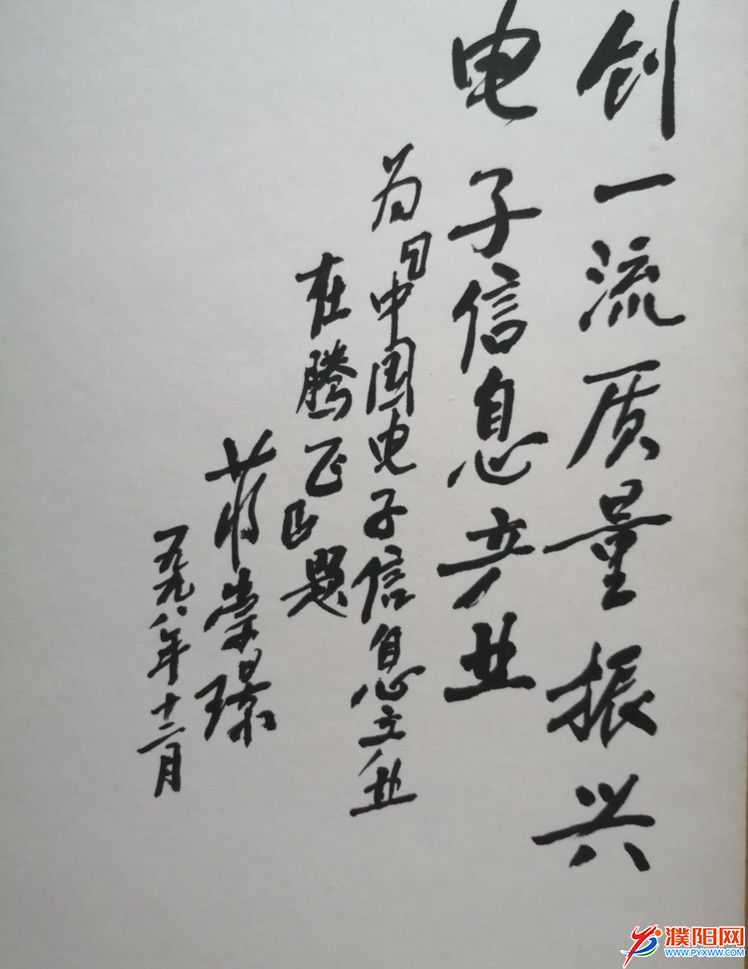 创一流质量振兴
电子信息产业
为中国电子信息产业
在腾正题
蒋崇璟
一九九八年十二月
濮阳网
WWW.PYXWW.COM